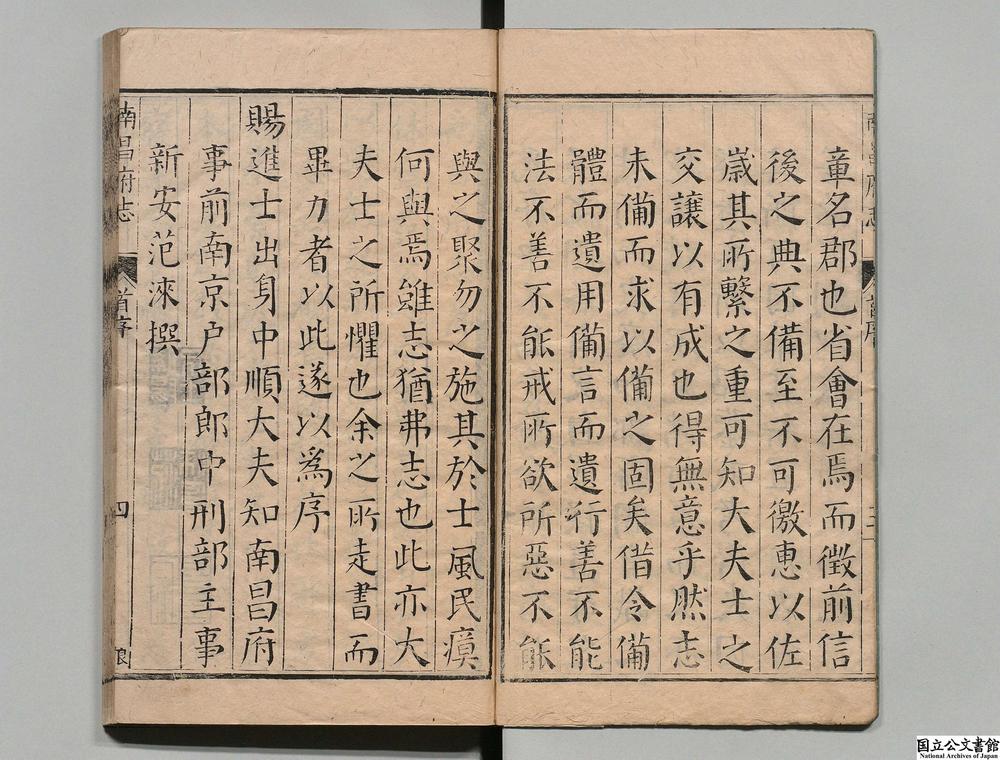 章名郡也省會在焉而徵前信
後之典不備至不可徼惠以佐
歲其所繫之重可知大夫士之
交讓以有成也得無意乎然志
未備而求以備之固矣借令備
體而遺用備言而遺行善不能
法不善不能戒所欲所惡不能
與之聚勿之施其於士風民瘼
何與焉雖志猶弗志也此亦大
夫士之所懼也余之所走書而
畢力者以此遂以為序
賜進士出身中順大夫知南昌府
事前南京户部郎中刑部主事
新安范淶撰
南昌府志
首序
四
國立公文書館
National Archives of Japan